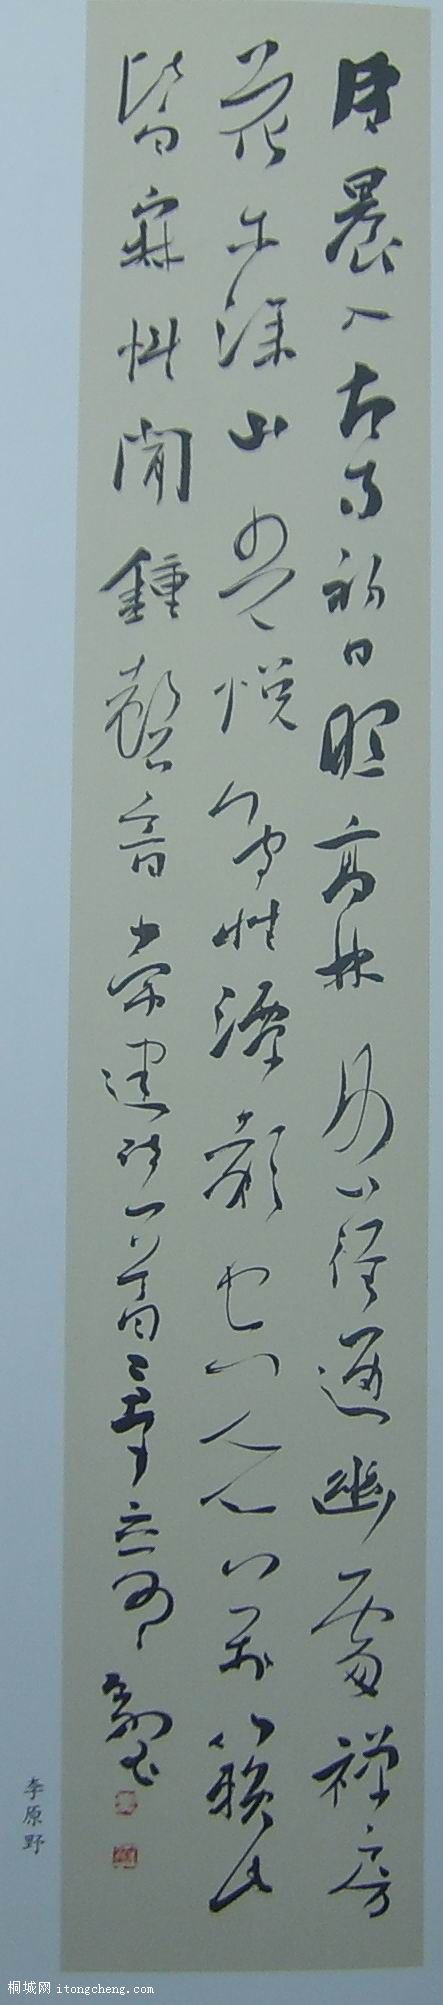 清晨入古寺初日照高林径通幽處禅房
花木深山光悦鸟性潭影空人心万籁此
皆寂惟聞鍾磬音常建诗一首
李原野
桐城网 itongcheng.com